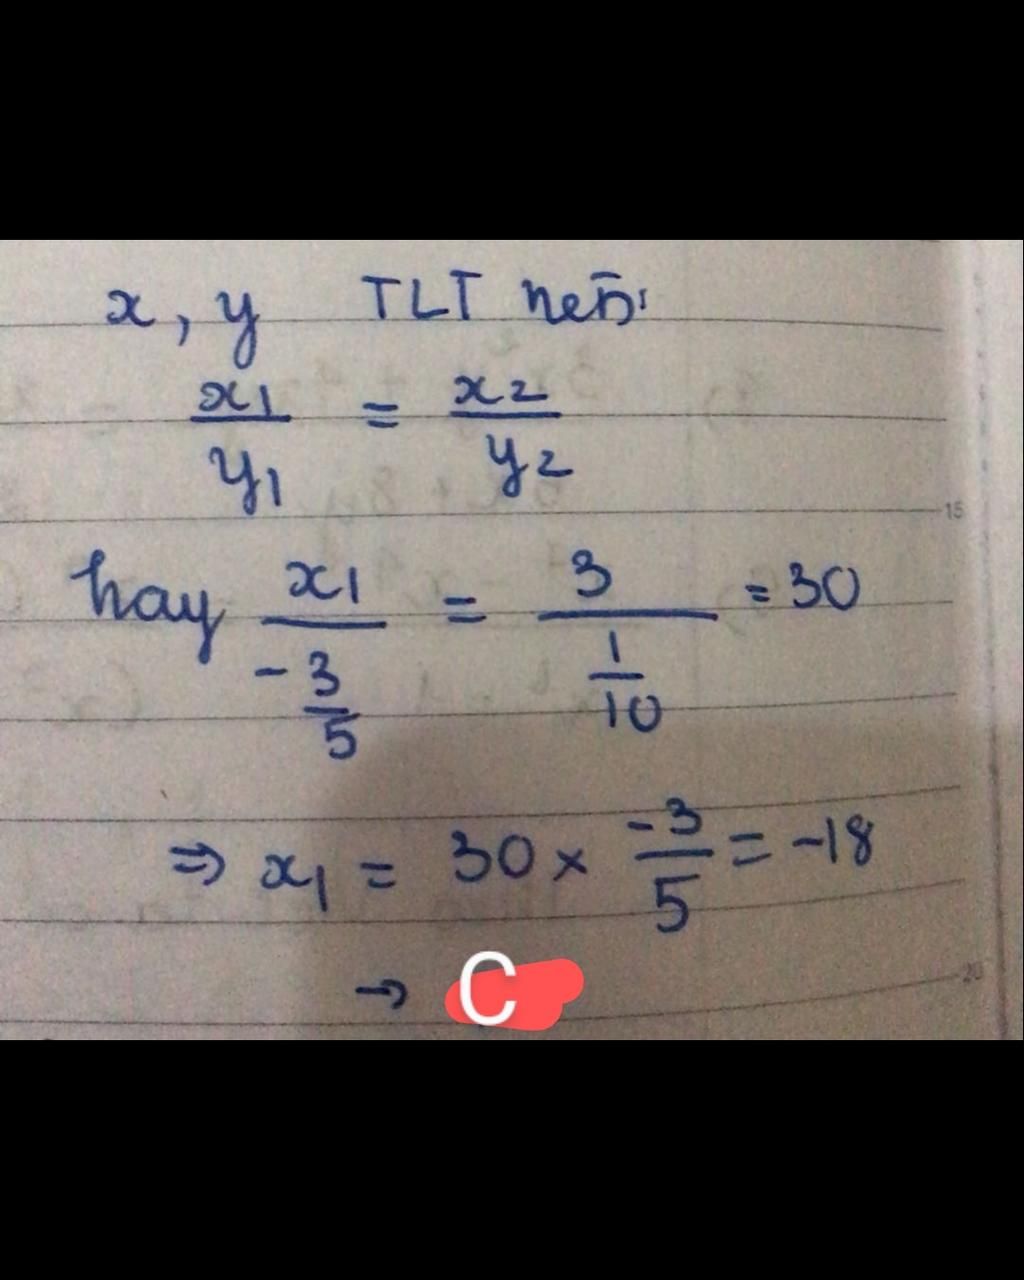 x, y TLT nên:
x1/y1 = x2/y2
hay x1/(-3/5) = 3/(1/10) = 30
⇒ x1 = 30 × -3/5 = -18
→ C
15
20